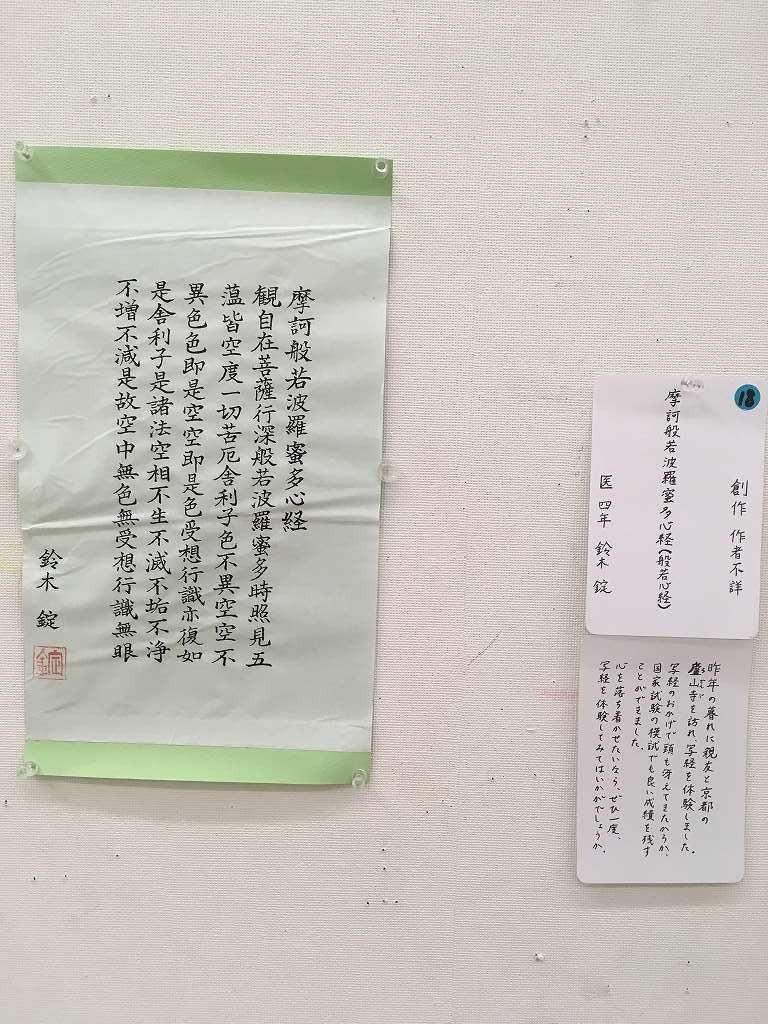 摩訶般若波羅蜜多心経
観自在菩薩行深般若波羅蜜多時照見五
蘊皆空度一切苦厄舎利子色不異空空不
異色色即是空空即是色受想行識亦復如
是舎利子是諸法空相不生不滅不垢不浄
不増不減是故空中無色無受想行識無眼
鈴木 錠
18
創作 作者不詳
摩訶般若波羅蜜多心経(般若心経)
医 四年 鈴木 錠
昨年の暮れに親友と京都の
廬山寺を訪れ、写経を体験しました。
写経のおかげで頭も冴えてきたからか、
国家試験の模試でも良い成績を残す
ことができました。
心を落ち着かせたいなら、ぜひ一度、
写経を体験してみてはいかがでしょうか。